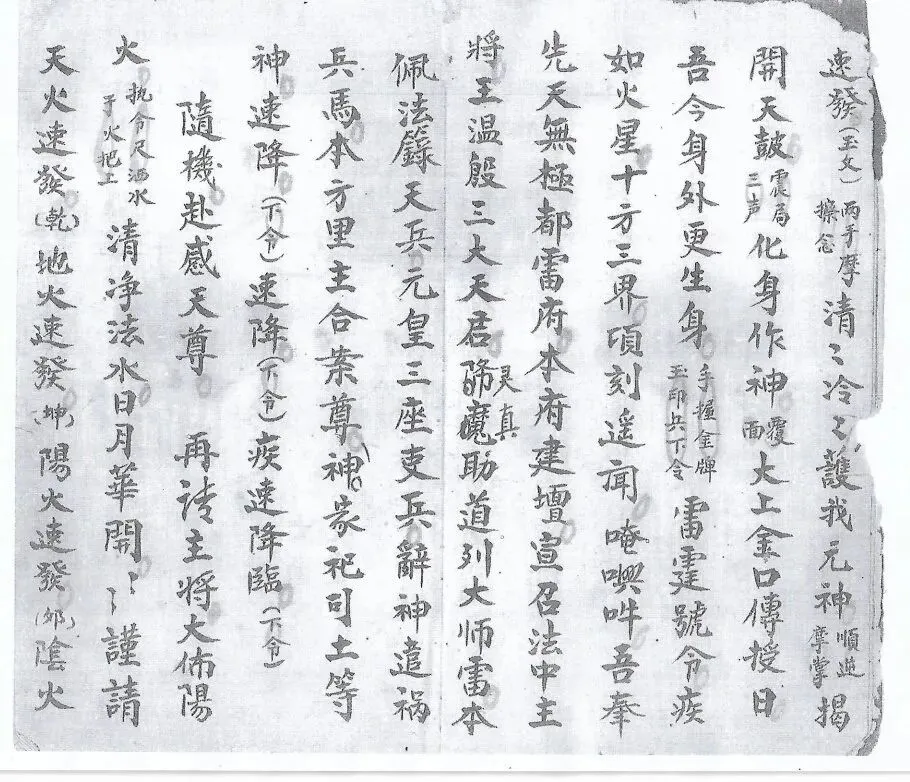 速發（玉文）兩手摩擦念清〻冷〻護我元神順逆摩掌揭
開天鼓震局三声化身作神覆面大上金口傳授日
吾今身外更生身手握金牌玉印兵下令雷霆號令疾
如火星十方三界項刻遥闻唵㘕吽吾奉
先天無極都雷府本府建壇宣召法中主
將王温殷三大天君灵真魔助道列大师雷本
佩法籙天兵元皇三座支兵辭神遣祸
兵馬本方里主合案尊神家祀司土等
神速降（下令）速降（下令）疾速降臨（下令）
隨機赴感天尊 再请主將大佈陽
火执令尺洒水于火把上清净法水日月華開〻〻謹請
天火速發（乾）地火速發（坤）陽火速發（郊）陰火